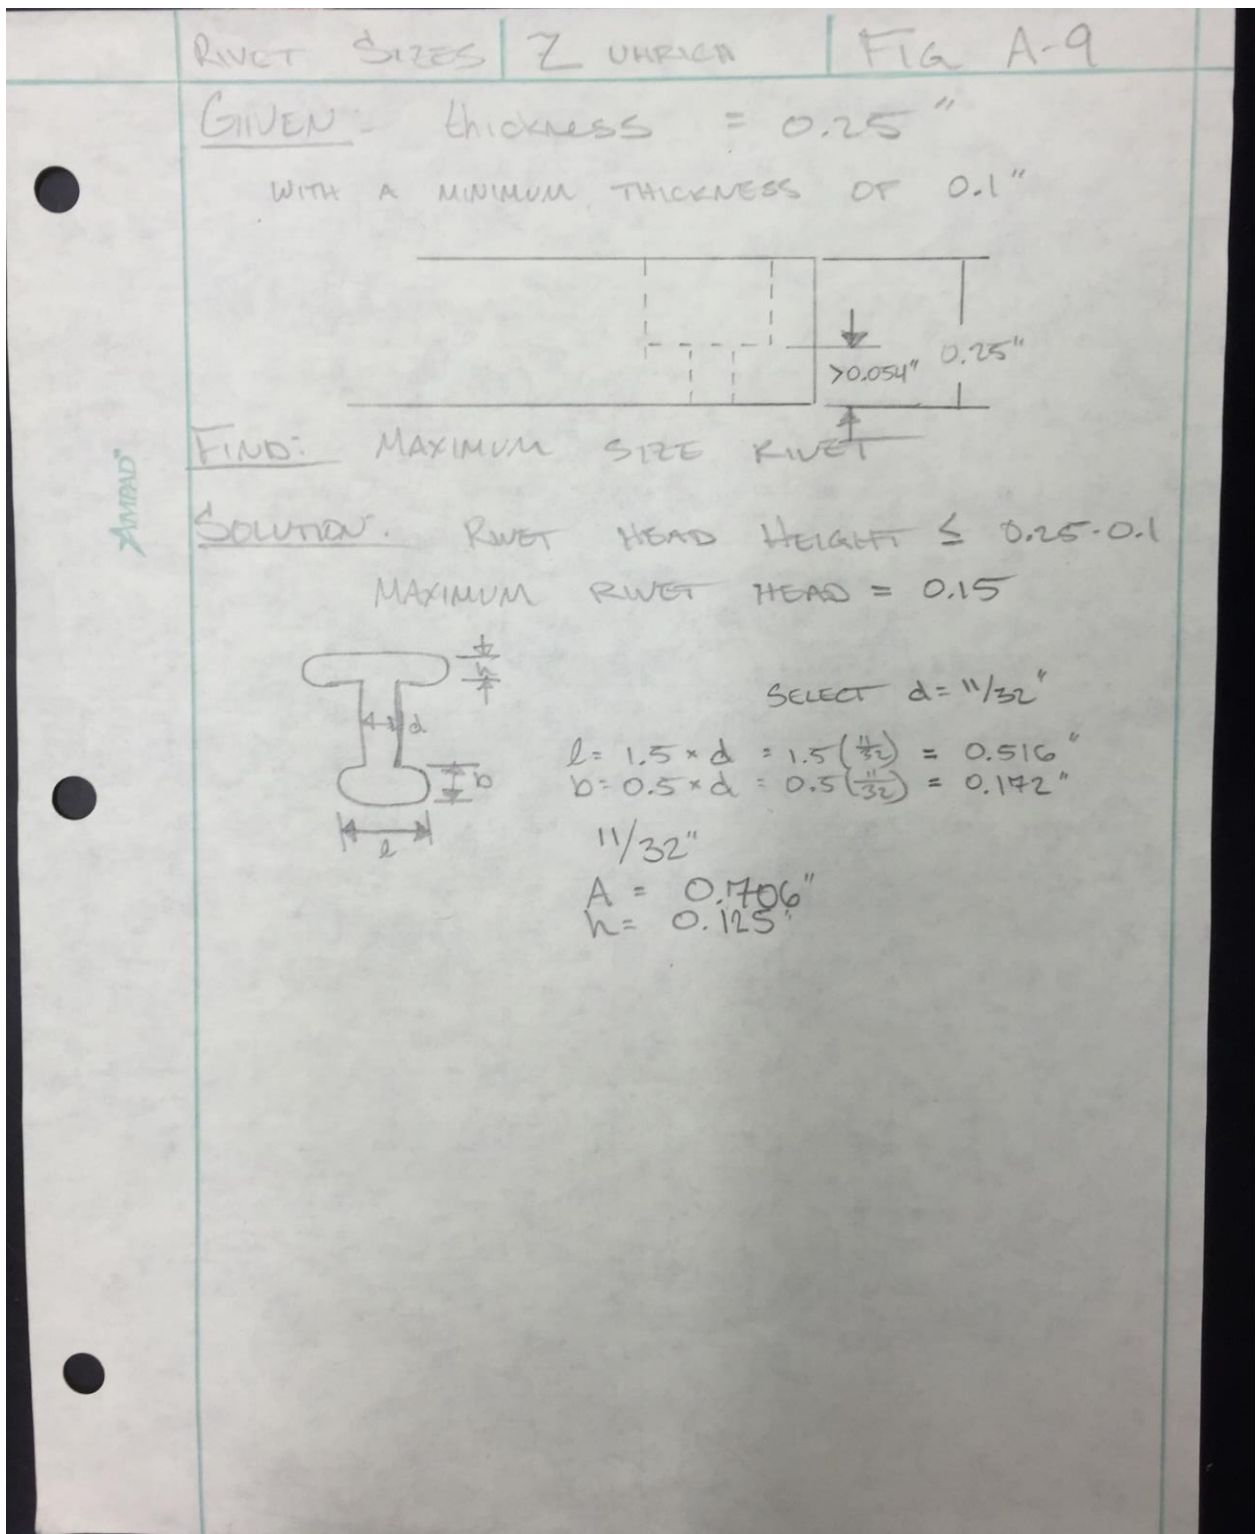 RIVET SIZES Z UHRICH FIG A-9
GIVEN: thickness = 0.25"
WITH A MINIMUM THICKNESS OF 0.1"
>0.054" 0.25"
FIND: MAXIMUM SIZE RIVET
AMPAD™
SOLUTION: RIVET HEAD HEIGHT ≤ 0.25-0.1
MAXIMUM RIVET HEAD = 0.15
h
SELECT d = 11/32"
d
l = 1.5 × d = 1.5 (11/32) = 0.516"
b = 0.5 × d = 0.5 (11/32) = 0.172"
b
l
11/32"
A = 0.706"
h = 0.125"